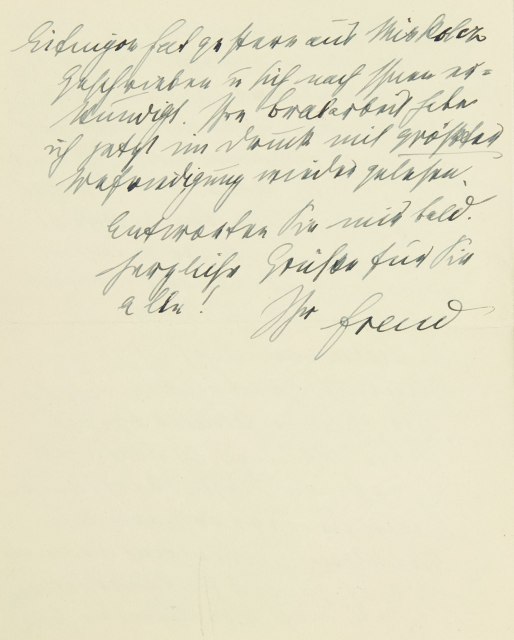 Eitingon hat gestern aus Miskolcz
geschrieben u sich nach Ihnen er=
kundigt. Ihre Oralarbeit habe
ich jetzt im Druck mit größter
Befriedigung wieder gelesen.
Antworten Sie mir bald.
Herzliche Grüße für Sie
alle!
Ihr Freud